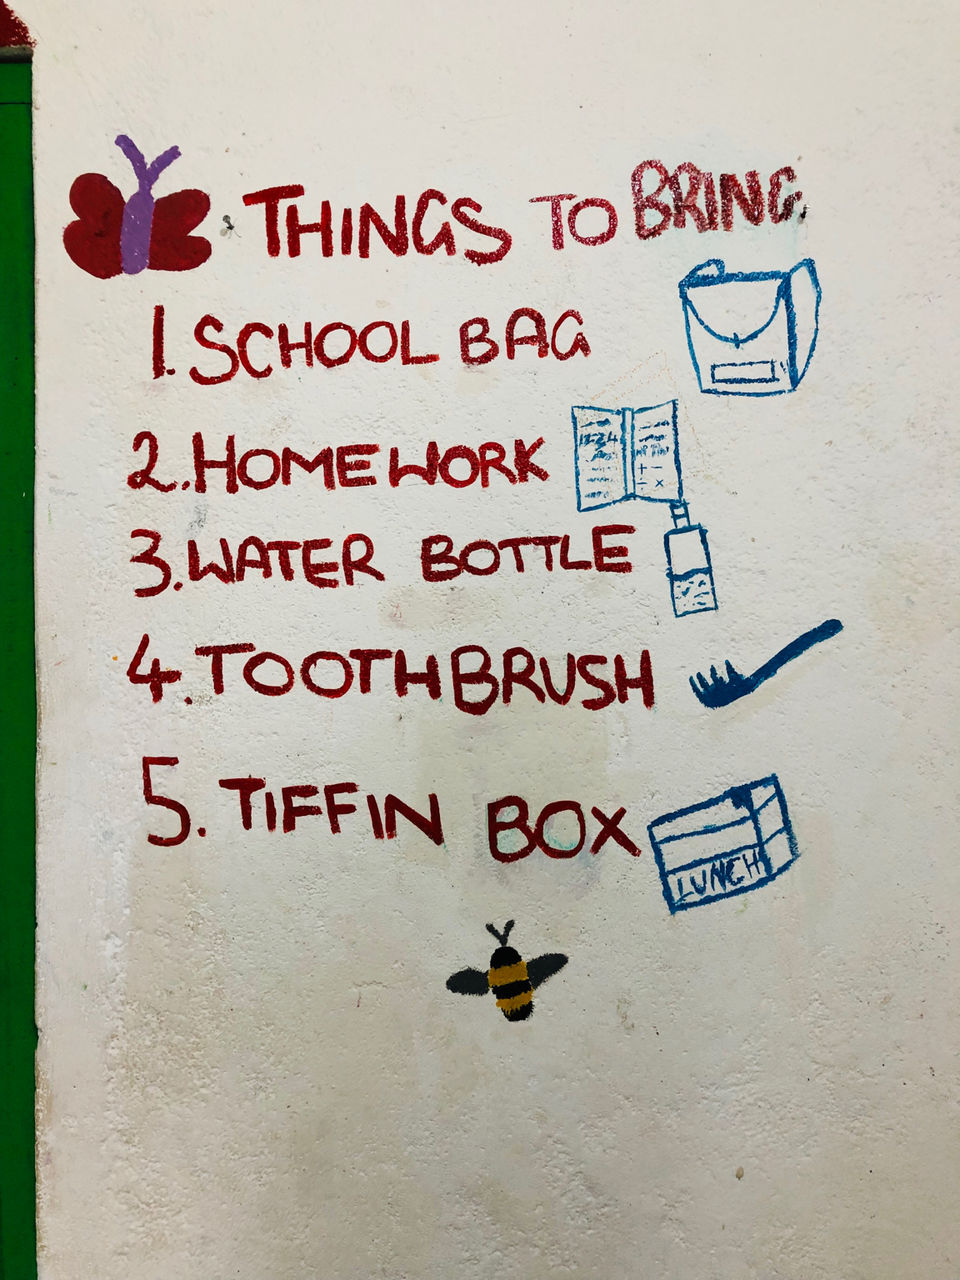 THINGS TO BRING
1. SCHOOL BAG
2. HOMEWORK
3. WATER BOTTLE
4. TOOTHBRUSH
5. TIFFIN BOX
LUNCH